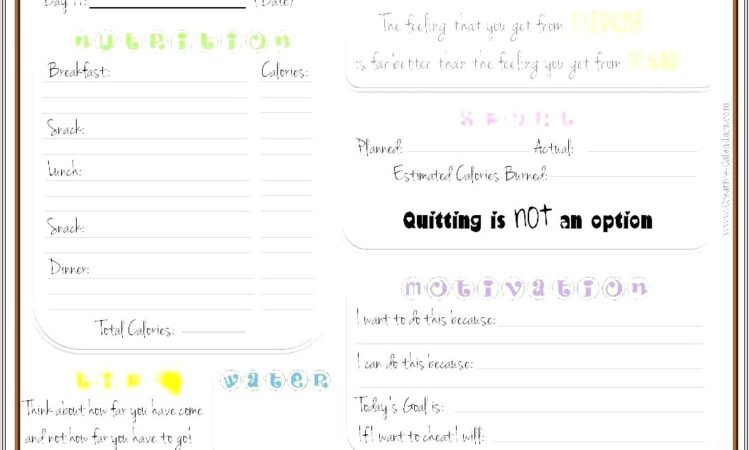 Day (Date)
NUTRITION
Breakfast: Calories:
Snack:
Lunch:
Snack:
Dinner:
Total Calories:
TIP
Think about how far you have come
and not how far you have to go!
WATER
The feeling that you get from
is far better than the feeling you get from
SPORT
Planned: Actual:
Estimated Calories Burned:
Quitting is NOT an option
MOTIVATION
I want to do this because:
I can do this because:
Today's Goal is:
If I want to cheat I will:
www.Creative-Calendars.com